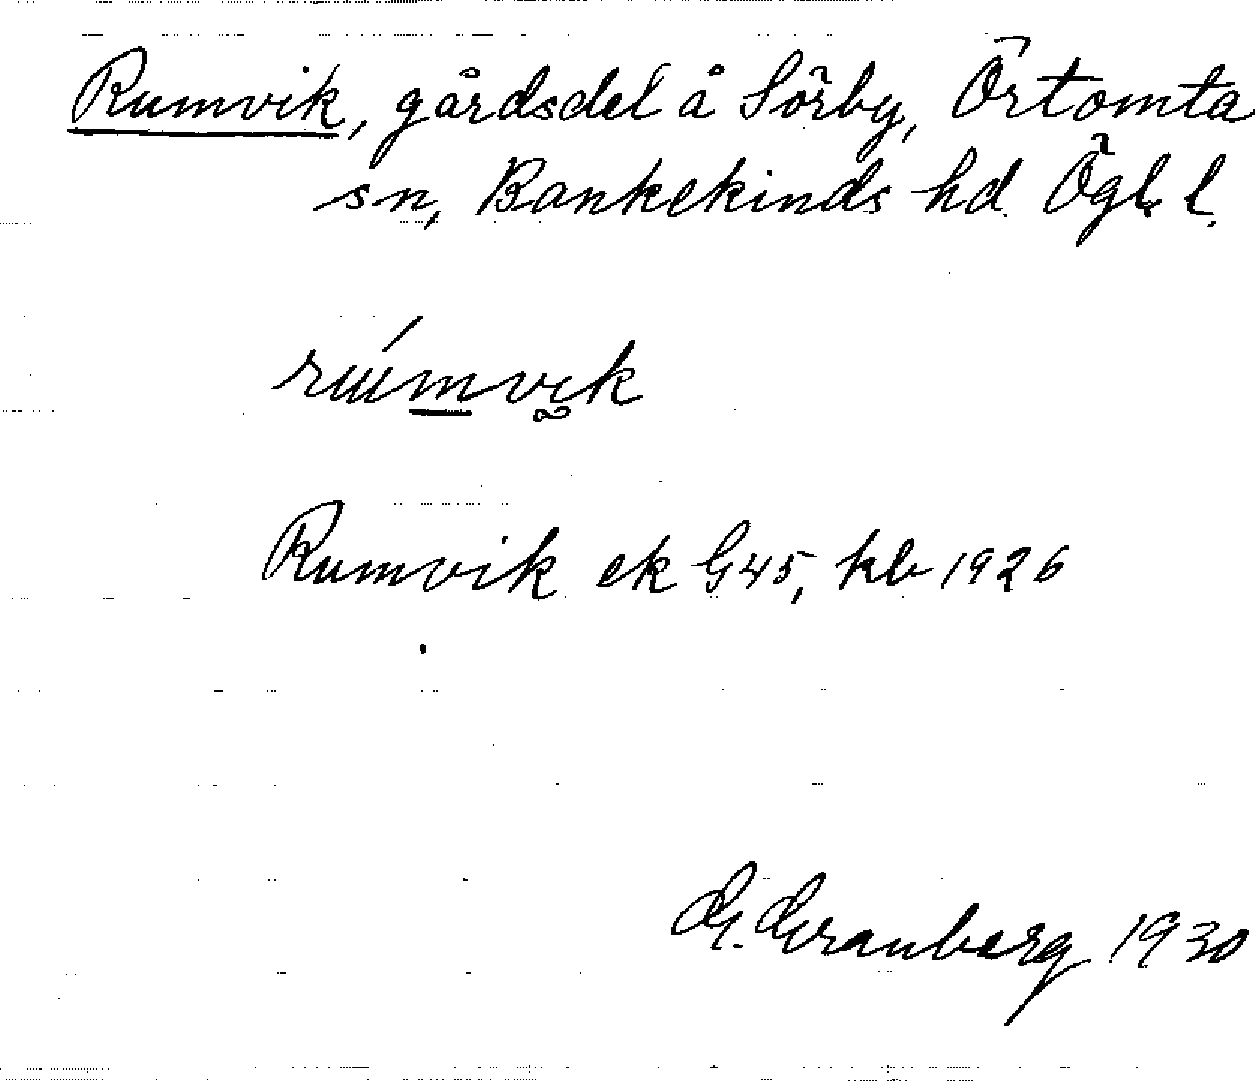 Rumvik, gårdsdel å Sörby, Örtomta
sn, Bankekinds hd Ögl. l.
Rumvik ek G45, kb 1926
G. Granberg 1930